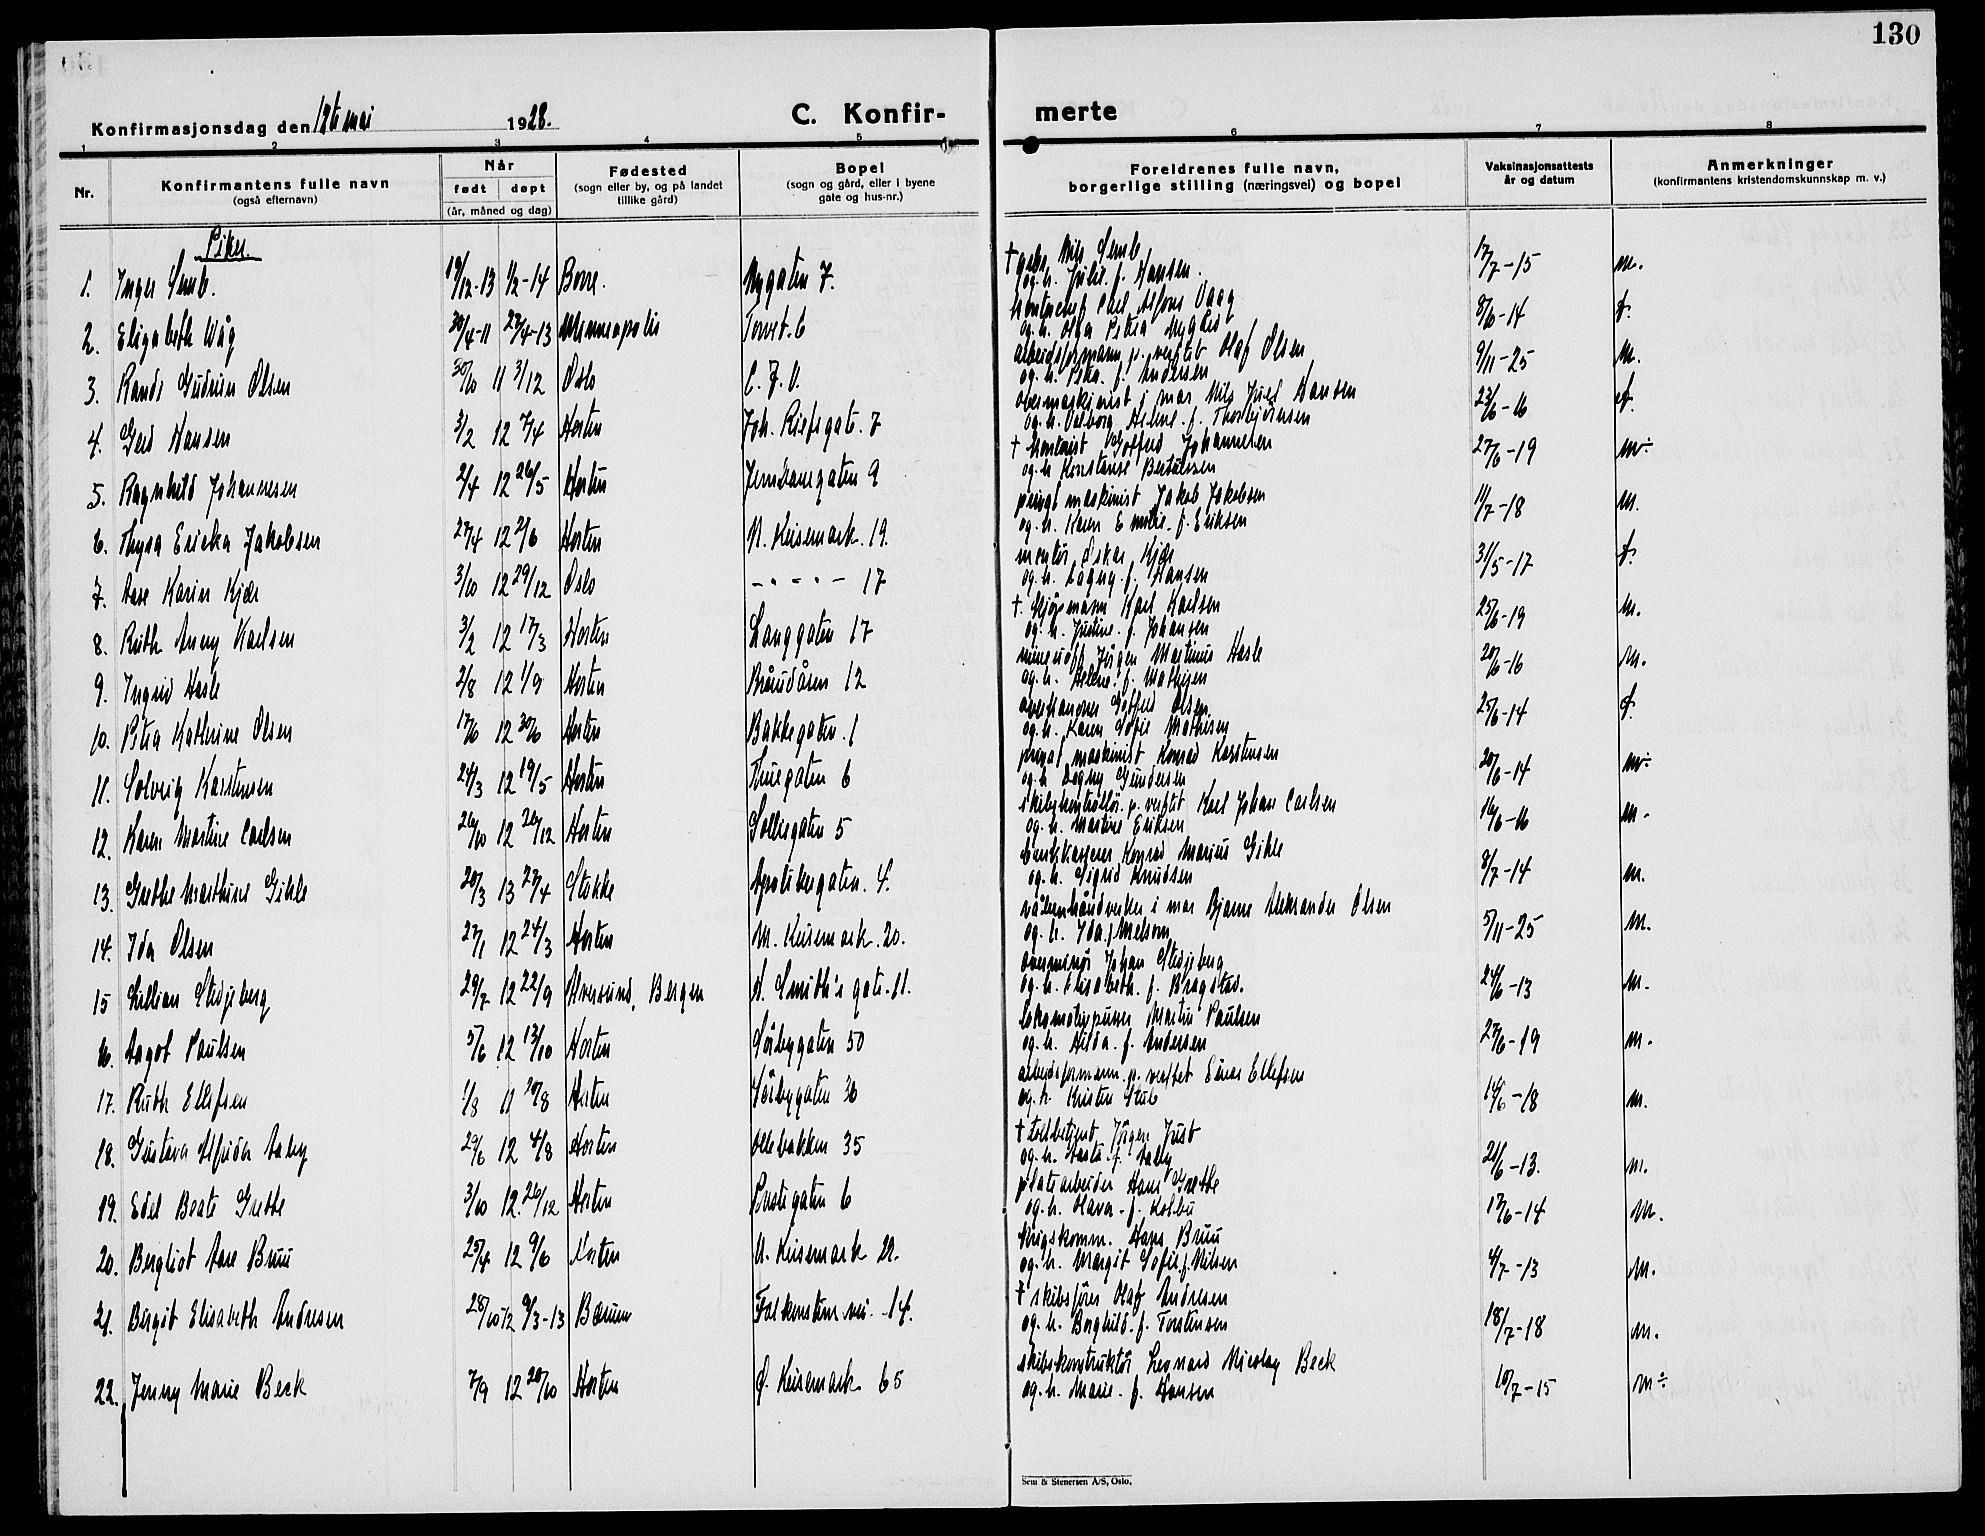 130
Konfirmasjonsdag den 13de mai 1928.
C. Konfir- merte
1 2 3 4 5 6 7 8
Nr.
Konfirmantens fulle navn
(også efternavn)
Når
født døpt
(år, måned og dag)
Fødested
(sogn eller by, og på landet
tillike gård)
Bopel
(sogn og gård, eller i byene
gate og hus-nr.)
Foreldrenes fulle navn,
borgerlige stilling (næringsvei) og bopel
Vaksinasjonsattests
år og datum
Anmerkninger
(konfirmantens kristendomskunnskap m. v.)
Piker.
† Nils Semb
1. Inger Semb. 19/12-13 1/2-14 Borre. Nygaten 7. og h. f. Hansen. 17/7-15 m.
Vaag
2. Elisabeth Wåg 30/4-11 27/4-13 Minneapolis Torvet. 6 og h. Olga Petra 8/6-14
arbeidsformann p. verftet Olaf Olsen
3. Randi Gudrun Olsen 30/10 11 3/12 Oslo og h. f. Andersen 9/11-25 m.
overmaskinist i mar Nils Juel Hansen
4. Gerd Hansen 3/2 12 7/4 Horten gate. 7 og h. Valborg Helene. f. Thorbjørnsen 23/6-16
† kontorist Gotfred Johannesen
5. Ragnhild Johannesen 2/4 12 26/5 Horten Jernbanegaten 9 og h Konstanse Bertelsen 27/6-19
privat maskinist Jakob Jakobsen
6. Thyra Ericka Jakobsen 27/4 12 2/6 Horten N. Keisemark. 19. og h. Karen Emilie. f. Eriksen 11/7-18 m.
montør Oskar Kjær
7. Aase Karin Kjær 3/10 12 29/12 Oslo - - - - - 17 og. h. Dagny. f. Hansen 31/5-17
† Karl Karlsen
8. Ruth Anny Karlsen 3/2 12 17/3 Horten Langgaten 17 og. h. Justine. f. Johansen 25/6-19 m.
mineuoff Jørgen Martinius Hasle
9. Ingrid Hasle 2/8 12 1/9 Horten Bråudåsen 12 og. h. Helene. f. Mathisen 20/6-16 m.
Gotfred Olsen
10. Petra Kathrine Olsen 17/6 12 30/6 Horten Bakkegaten. 1 og. h. Karen Sofie Mathisen 25/6-14
privat maskinist Konrad Karstensen
11. Solveig Karstensen 24/3 12 19/5 Horten 6 og. h Dagny Gundersen 20/6-14
p. verftet Karl Johan Carlsen
12. Karen Martine Carlsen 26/10 12 26/12 Horten Solliegaten 5 og. h. Martine Eriksen 16/6-16 m.
bankkasserer Konrad Marius Gihle
13. Grethe Marthine Gihle 20/3 13 27/4 Stokke Apotekergaten. 4. og. h. Sigrid Knudsen 8/7-14 m.
våbenhåndverker i mar Bjarne Aleksander Olsen
14. Ida Olsen 27/1 12 24/3 Horten N. Keisemark. 20. og. h. Ida. f. Melsom 5/11-25 m.
overminør Johan Stedjeberg
15 Lillian Stedjeberg 29/7 12 22/9 Bergen H. Smith's gate. 11. og. h. Elisabeth. f. Bragstad. 24/6-13 m.
lokomotivpusser Martin Paulsen
16. Aagot Paulsen 5/6 12 13/10 Horten Sörbygaten 50 og. h. Hilda. f. Andersen 27/6-19 m.
arbeidsformann. p. verftet Einar Ellefsen
17. Ruth Ellefsen 1/8 11 20/8 Horten Sörbygaten 36 og. h. Kristin Stub 14/6-18 m.
† tollbetjent Jørgen Just
18. Gustava Alfrida Aaby 29/6 12 4/8 Horten Ollebakken 35 og. h. Aasta. f. Aaby 21/6-13. m.
platearbeider Hans Grethe
19. Edel Beate Grethe 3/10 12. 26/12 Horten Prestegaten 6 og. h. Olava. f. Kolbu 17/6-14 m.
Krigskomm. Hans Bruu
20. Bergliot Aase Bruu 25/4 12 9/6 Horten N. Keisemark 22. og. h. Margit Sofie. f. Nilsen 4/7-13 m.
† skibsfører Olaf Andresen
21. Birgit Elisabeth Andresen 28/10 12 9/3-13 Bærum Falkensten. vei. 14. og. h. Borghild. f. Torstensen 18/7-18 m.
skibskonstruktör Leonard Nicolay Beck
22. Jenny Marie Beck 7/9 12 20/10 Horten Ø. Keisemark 65 og. h. Marie. f. Hansen 10/7-15
Sem & Stenersen A/S, Oslo.